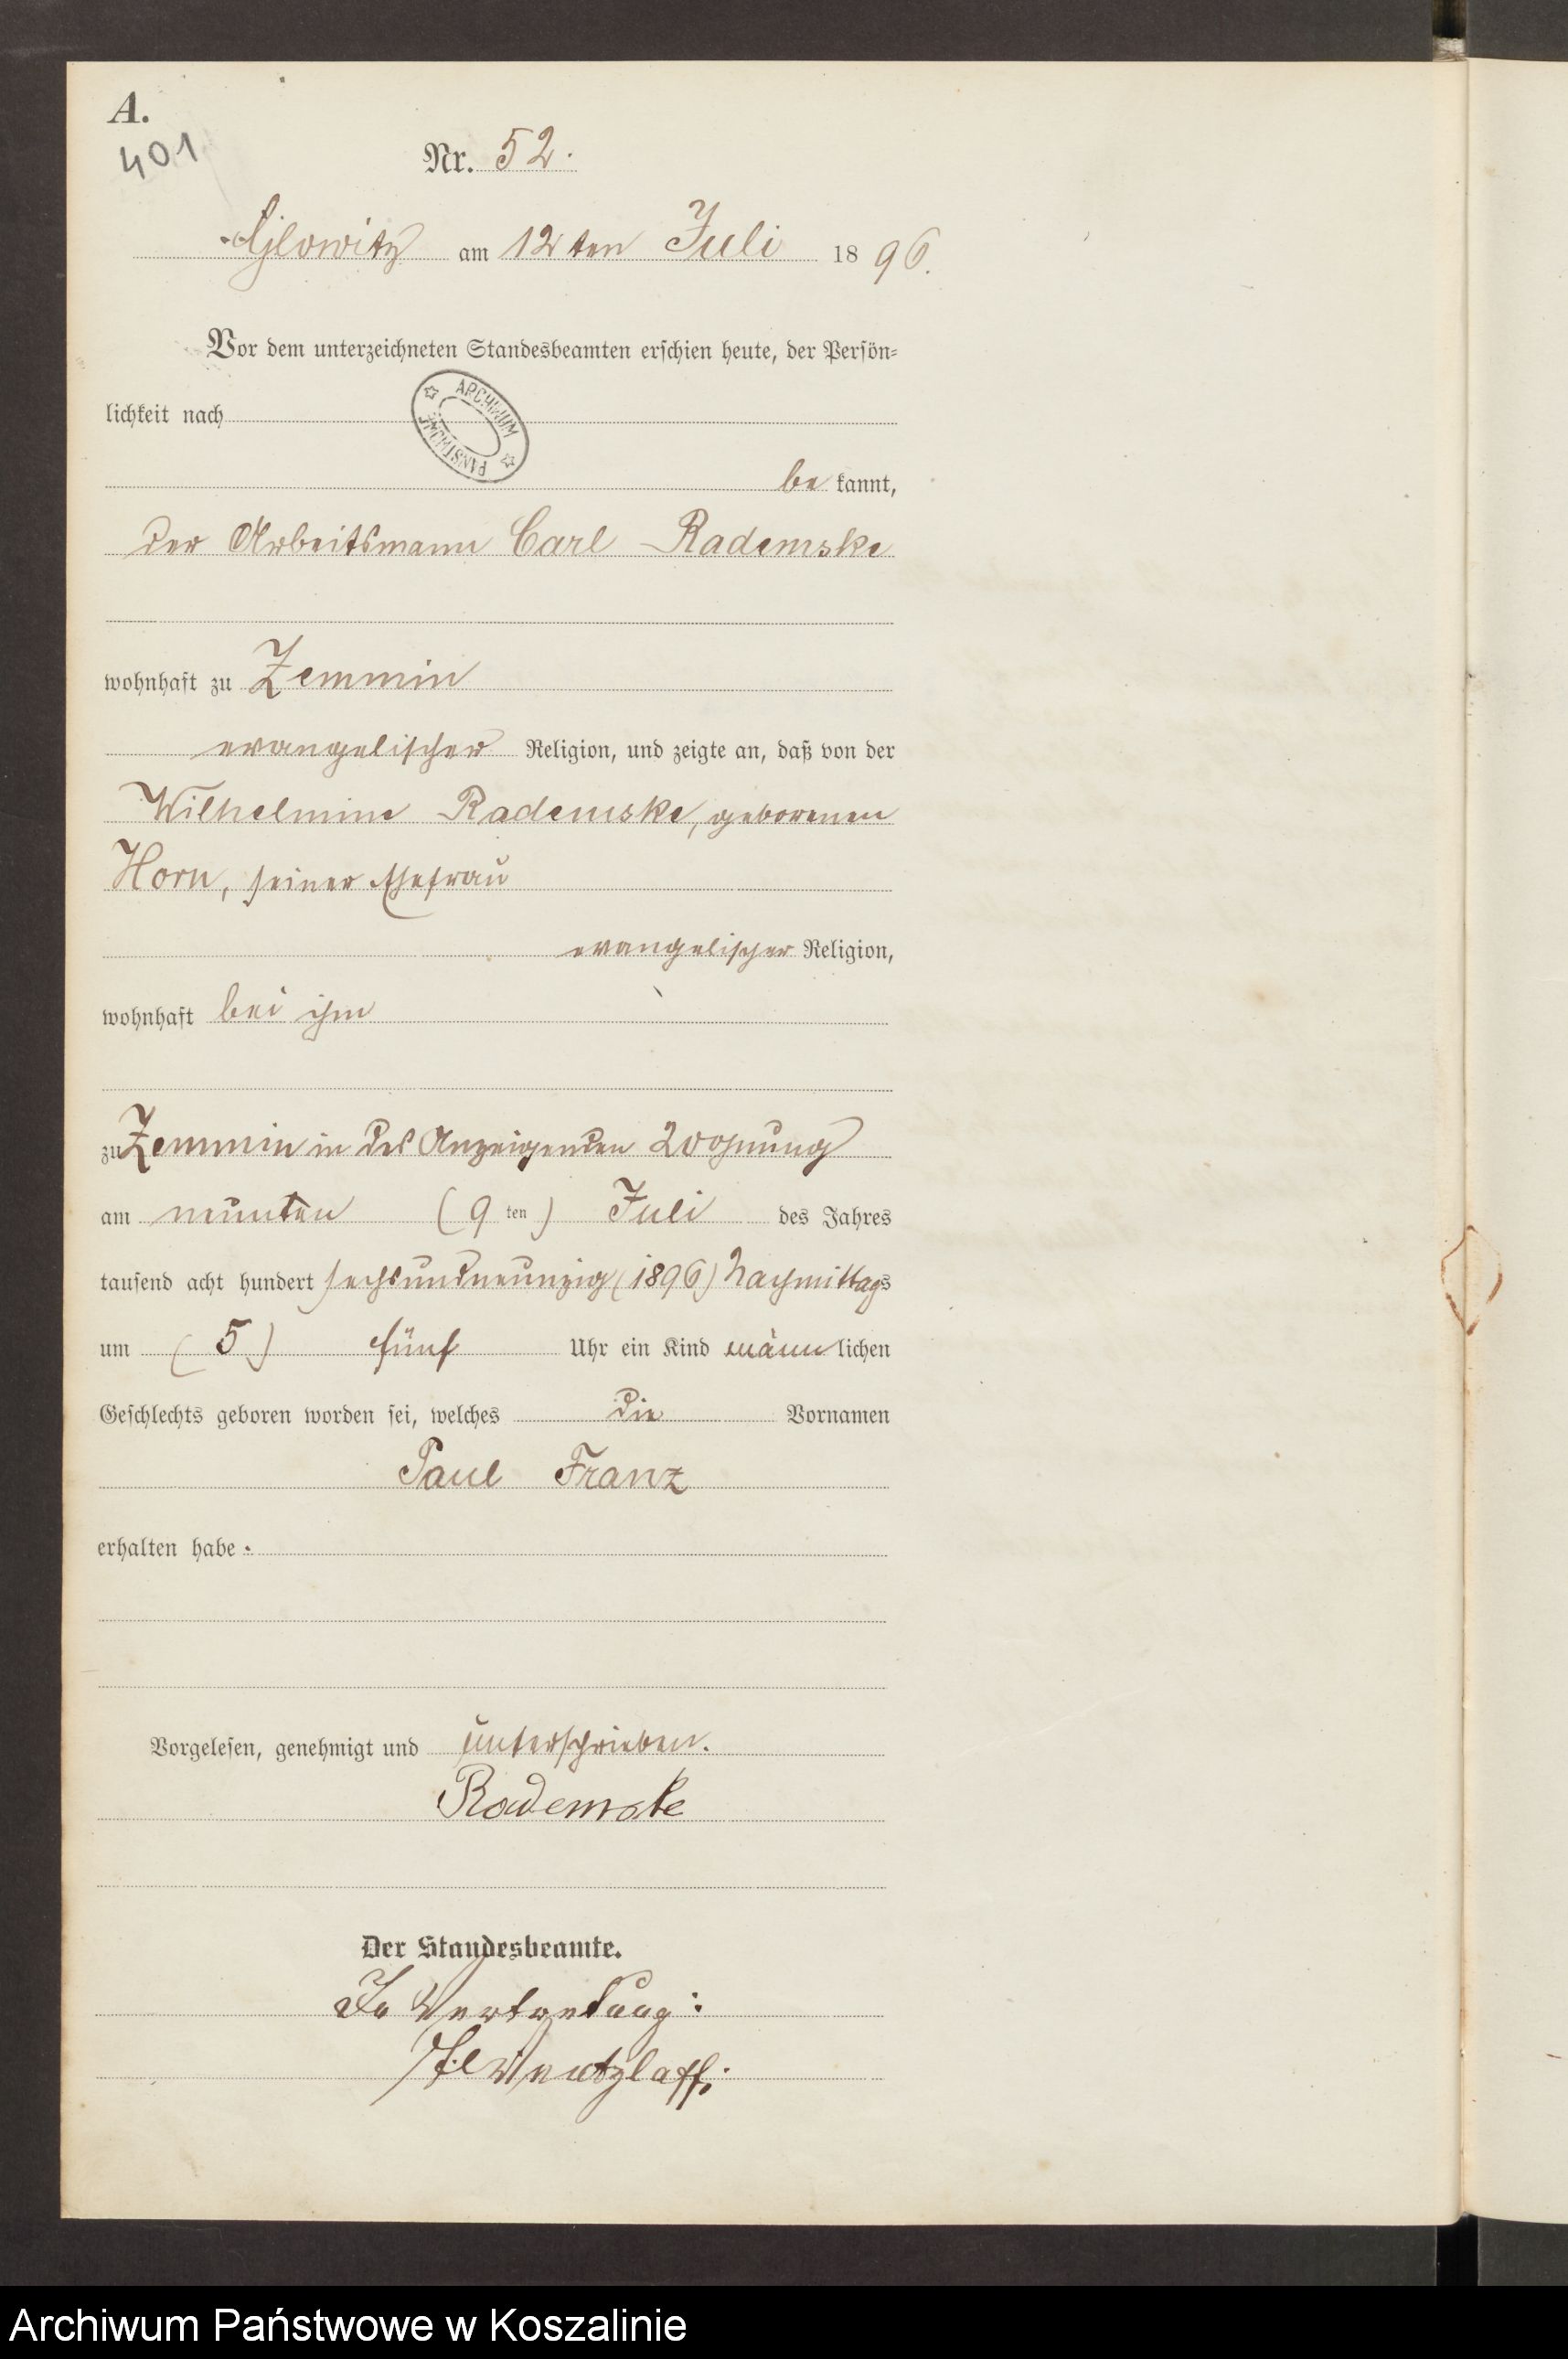 A.
401
Nr. 52.
Glowitz am 12ten Juli 1896.
Vor dem unterzeichneten Standesbeamten erschien heute, der Persön=
lichkeit nach
ARCHIWUM PAŃSTWOWE
be kannt,
der Arbeitsmann Carl Rademske
wohnhaft zu Zemmin
evangelischer Religion, und zeigte an, daß von der
Wilhelmine Rademske, geborenen
Horn, seiner Ehefrau
evangelischer Religion,
wohnhaft bei ihm
zu Zemmin in des Anzeigenden Wohnung
am neunten (9 ten) Juli des Jahres
tausend acht hundert sechsundneunzig (1896) Nachmittags
um (5) fünf Uhr ein Kind männlichen
Geschlechts geboren worden sei, welches die Vornamen
Paul Franz
erhalten habe.
Vorgelesen, genehmigt und unterschrieben.
Rademske
Der Standesbeamte.
In Vertretung:
Wentzlaff.
Archiwum Państwowe w Koszalinie